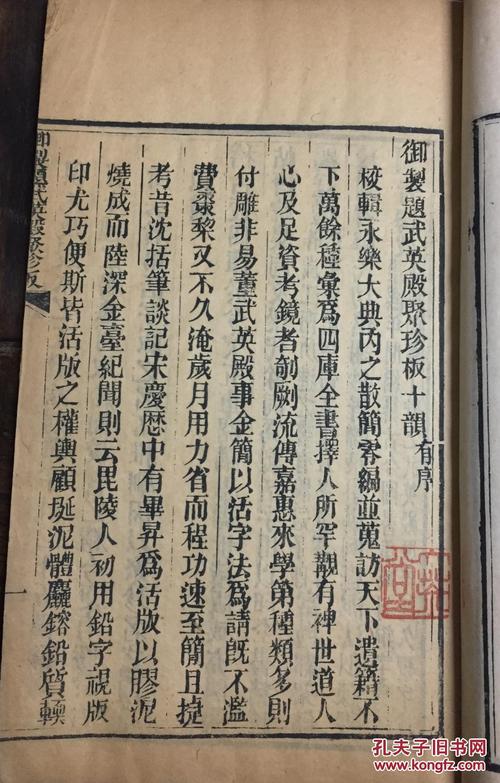 御製題武英殿聚珍板十韻有序
校輯永樂大典內之散簡零編並蒐訪天下遺籍不
下萬餘種彙為四庫全書擇人所罕覯有裨世道人
心及足資考鏡者剞劂流傳嘉惠來學第種類多則
付雕非易董武英殿事金簡以活字法為請既不濫
費棗黎又不久淹歲月用力省而程功速至簡且捷
考昔沈括筆談記宋慶歷中有畢昇為活版以膠泥
燒成而陸深金臺紀聞則云毘陵人初用鉛字視版
印尤巧便斯皆活版之權輿顧埏泥體麤鎔鉛質輭
御製題武英殿聚珍板
一
孔夫子旧书网
www.kongfz.com